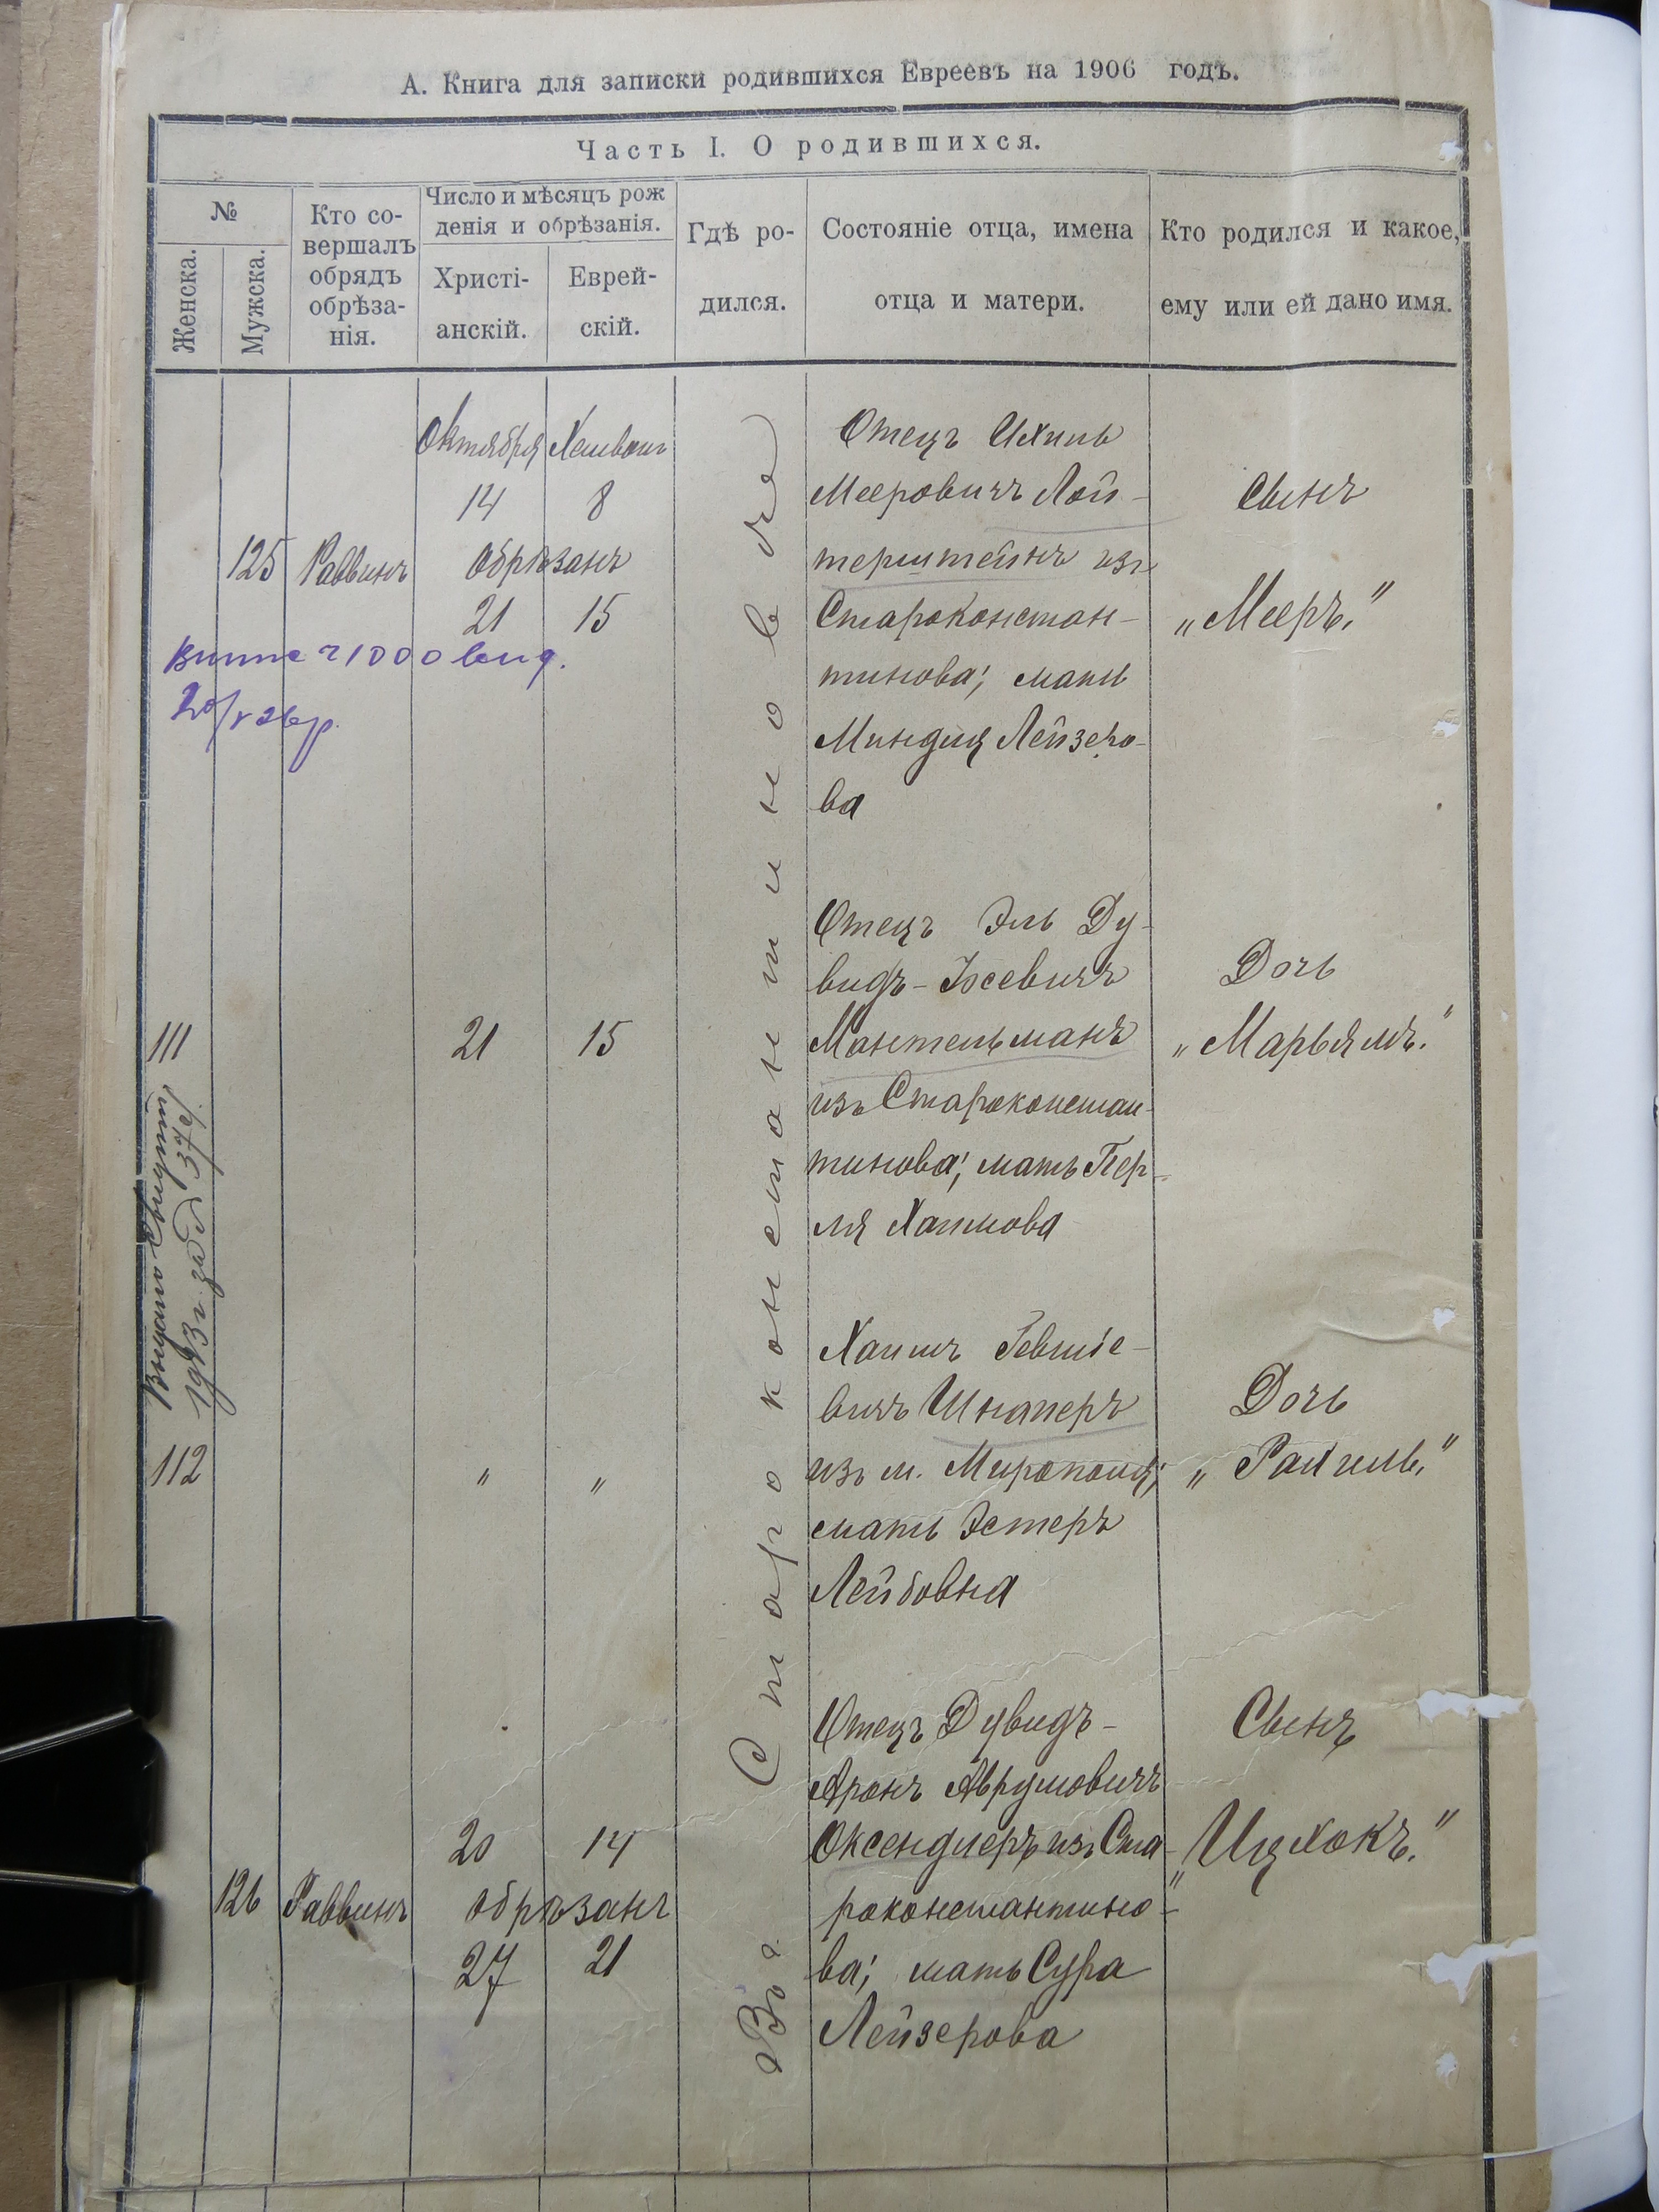 А. Книга для записки родившихся Евреевъ на 1906 годъ.
Часть I. О родившихся.
№
Женска.
Мужска.
Кто со-
вершалъ
обрядъ
обрѣза-
нія.
Число и мѣсяцъ рож
денія и обрѣзанія.
Христі-
анскій.
Еврей-
скій.
Гдѣ ро-
дился.
Состояніе отца, имена
отца и матери.
Кто родился и какое,
ему или ей дано имя.
Въ г. Староконстантиновѣ
125 Раввинъ
Октября Хешвонъ
14 8
обрѣзанъ
21 15
Отецъ Ихиль
Мееровичъ Лой-
терштейнъ изъ
Староконстан-
тинова; мать
Миндля Лейзеро-
ва
Сынъ
„Мееръ."
111
21 15
Отецъ Эль Ду-
видъ-Іосевичъ
Мантельманъ
изъ Староконстан-
тинова; мать Пер-
ля Хаимова
Дочь
„Марьямъ."
Выдано
1913 г.
112
" "
Хаимъ
вичъ Шнаперъ
изъ м. Мирополя;
мать Эстеръ
Лейбовна
Дочь
„Рахиль."
126 Раввинъ
20 14
обрѣзанъ
27 21
Отецъ Дувидъ-
Аронъ Аврумовичъ
Оксендлеръ изъ Ста-
роконстантино-
ва; мать Сура
Лейзерова
Сынъ
„Ицхокъ."